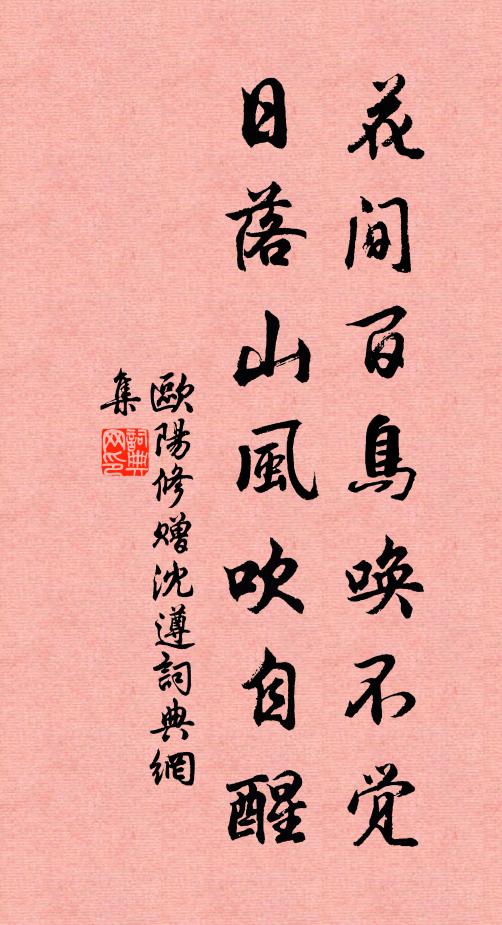 花间百鳥唤不覚
日落山風吹自醒
歐陽修贈沈遵詞典網
集
詞典网印